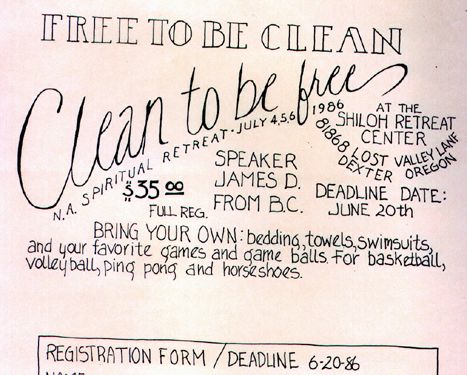 FREE TO BE CLEAN
Clean to be free
N.A. SPIRITUAL RETREAT · JULY 4,5,6 1986
AT THE
SHILOH RETREAT
CENTER
81868 LOST VALLEY LANE
DEXTER OREGON
$35 00
FULL REG.
SPEAKER
JAMES D.
FROM B.C.
DEADLINE DATE:
JUNE 20th
BRING YOUR OWN: bedding, towels, swimsuits,
and your favorite games and game balls. For basketball,
volleyball, ping pong and horseshoes.
REGISTRATION FORM / DEADLINE 6-20-86